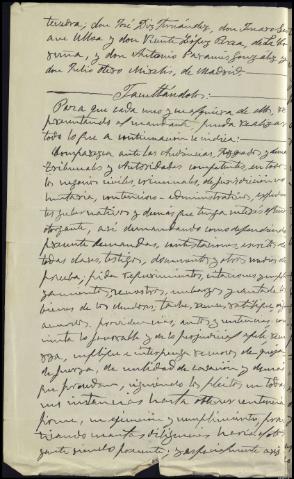 tevedra; don José Diz Fernández, don
Ulloa y don Vicente López Perea, de La Co-
ruña, y don Antonio Páramo González y
don Julio Miralis, de Madrid
Facultándoles:
Para que cada uno y cualquiera de ellos, re-
presentando al mandante, pueda realizar
todo lo que a continuación se indica:
Comparezca ante las Audiencias, Juzgado y demás
Tribunales y Autoridades competentes, en todos
los negocios civiles, criminales, de jurisdicción vo-
luntaria, contencioso-administrativos, expedien-
tes gubernativos y demás que tenga el
otorgante, así demandando como defendiendo;
presente demandas, contestaciones, escritos de
todas clases, testigos, documentos y otros medios de
prueba; pida requerimientos, citaciones y empla-
zamientos, embargos y venta de
bienes de los deudores, tache, recuse, ratifique,
providencias, autos y sentencias, con-
sienta lo favorable y de lo perjudicial apele,
suplique e interponga recursos de queja,
de fuerza, de nulidad de casación y demás
que procedan, siguiendo los pleitos en todas
sus instancias hasta obtener sentencia
firme, su ejecución y cumplimiento, prac-
ticando cuantas diligencias haría el otor-
gante siendo presente, y especialmente